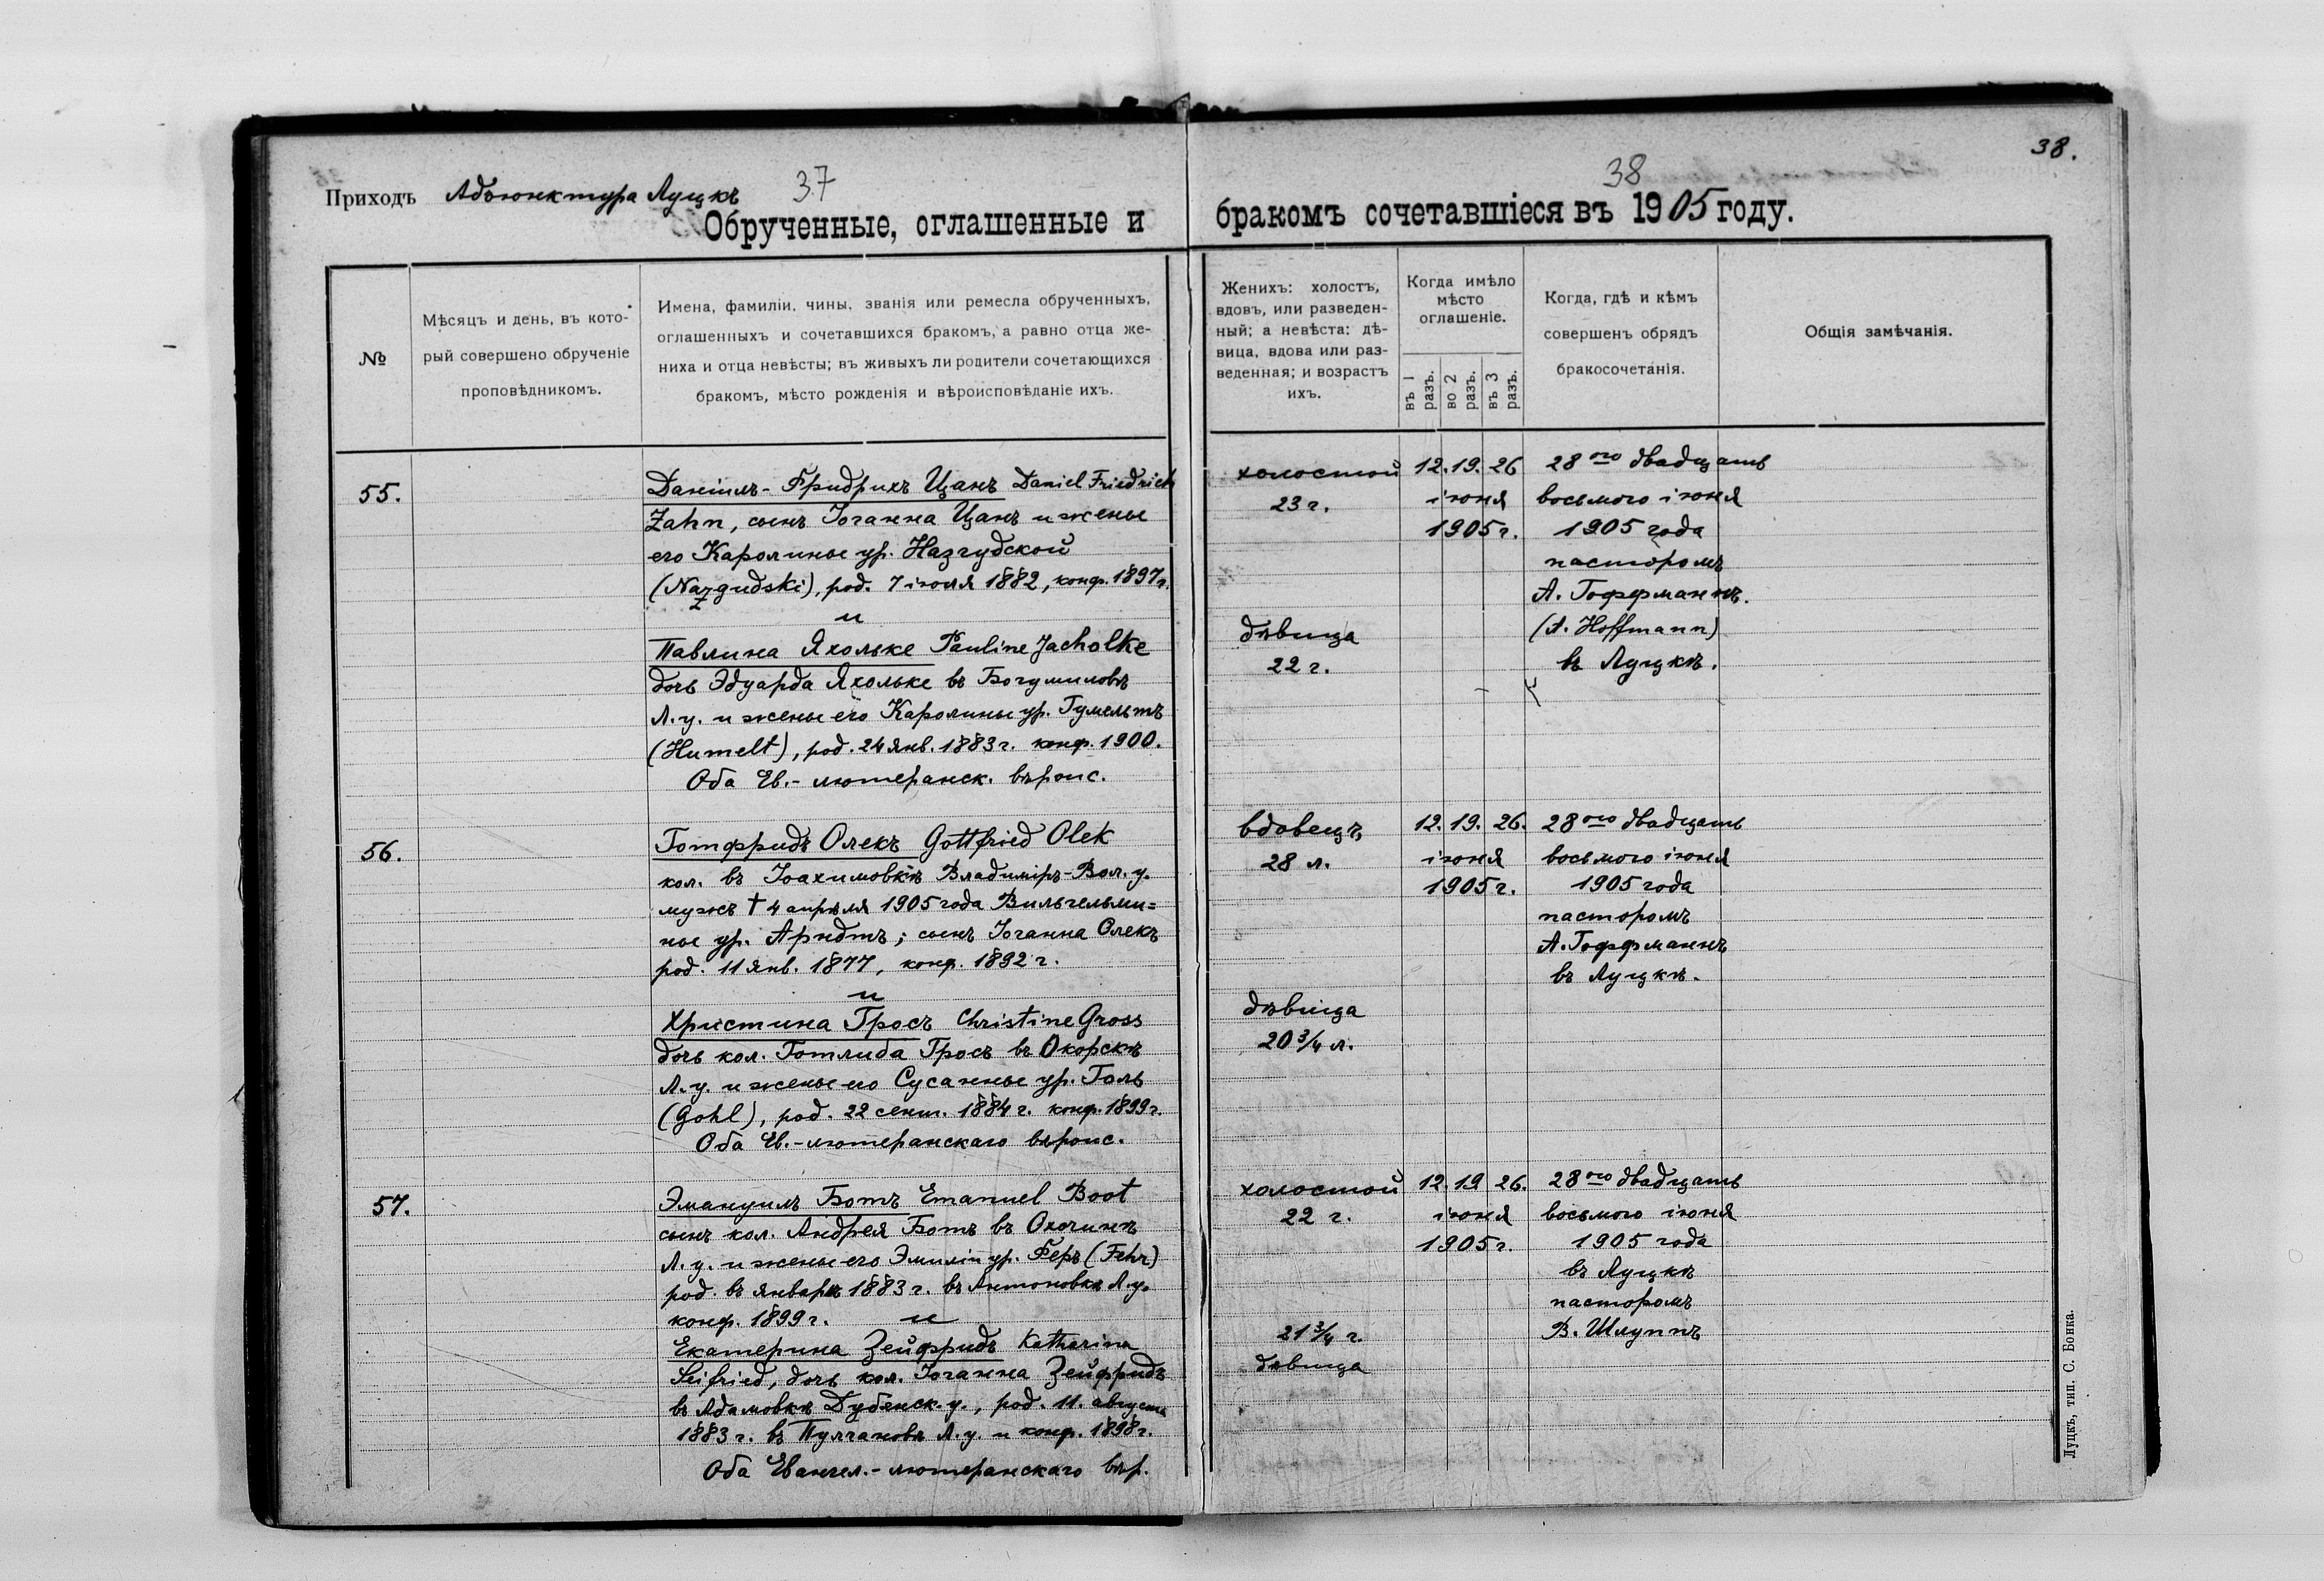 38.
37
38
Приходъ Адъюнктура Луцкъ
Обрученные, оглашенные и бракомъ сочетавшіеся въ 1905 году.
№
Мѣсяцъ и день, въ кото-
рый совершено обрученіе
проповѣдникомъ.
Имена, фамиліи, чины, званія или ремесла обрученныхъ,
оглашенныхъ и сочетавшихся бракомъ, а равно отца же-
ниха и отца невѣсты; въ живыхъ ли родители сочетающихся
бракомъ, мѣсто рожденія и вѣроисповѣданіе ихъ.
Женихъ: холостъ,
вдовъ, или разведен-
ный; а невѣста: дѣ-
вица, вдова или раз-
веденная; и возрастъ
ихъ.
Когда имѣло
мѣсто
оглашеніе.
въ 1 разъ.
во 2 разъ.
въ 3 разъ.
Когда, гдѣ и кѣмъ
совершенъ обрядъ
бракосочетанія.
Общія замѣчанія.
55.
Даніилъ-Фридрихъ Цанъ Daniel Friedrich
Zahn, сынъ Іоганна Цанъ и жены
его Каролины ур. Назгудской
(Nazgudski), род. 7 іюля 1882, конф. 1897 г.
и
Павлина Яхольке Pauline Jacholke
дочь Эдуарда Яхольке въ Богумиловѣ
Л. у. и жены его Каролины ур. Гумельтъ
(Humelt), род. 24 янв. 1883 г. конф. 1900.
Оба Ев.-лютеранск. вѣроис.
холостой
23 г.
дѣвица
22 г.
12. 19. 26
іюня
1905 г.
28ого двадцать
восьмого іюня
1905 года
пасторомъ
А. Гоффманнъ.
(A. Hoffmann)
въ Луцкѣ.
56.
Готфридъ Олекъ Gottfried Olek
кол. въ Іоахимовкѣ Владиміръ-Вол. у.
мужъ † 4 апрѣля 1905 года Вильгельми=
ны ур. Арндтъ; сынъ Іоганна Олекъ
род. 11 янв. 1877, конф. 1892 г.
и
Христина Гросъ Christine Gross
дочь кол. Готлиба Гросъ въ Окорскѣ
Л. у. и жены его Сусанны ур. Голь
(Gohl), род. 22 сент. 1884 г. конф. 1899 г.
Оба Ев.-лютеранскаго вѣроис.
вдовецъ
28 л.
дѣвица
20 3/4 л.
12. 19. 26.
іюня
1905 г.
28ого двадцать
восьмого іюня
1905 года
пасторомъ
А. Гоффманнъ
въ Луцкѣ.
57.
Эмануилъ Ботъ Emanuel Boot
сынъ кол. Андрея Ботъ въ Охочинѣ
Л. у. и жены его Эмиліи ур. Феръ (Fehr)
род. въ январѣ 1883 г. въ Антоновкѣ Л. у.
конф. 1899 г. и
Екатерина Зейфридъ Katharina
Seifried, дочь кол. Іоганна Зейфридъ
въ Адамовкѣ Дубенск. у., род. 11. августа
1883 г. въ Пулгановѣ Л. у. и конф. 1898 г.
Оба Евангел.-лютеранскаго вѣр.
холостой
22 г.
21 3/4 г.
дѣвица
12. 19 26.
іюня
1905 г.
28ого двадцать
восьмого іюня
1905 года
въ Луцкѣ
пасторомъ
В. Шлуппъ
Луцкъ, тип. С. Бонка.